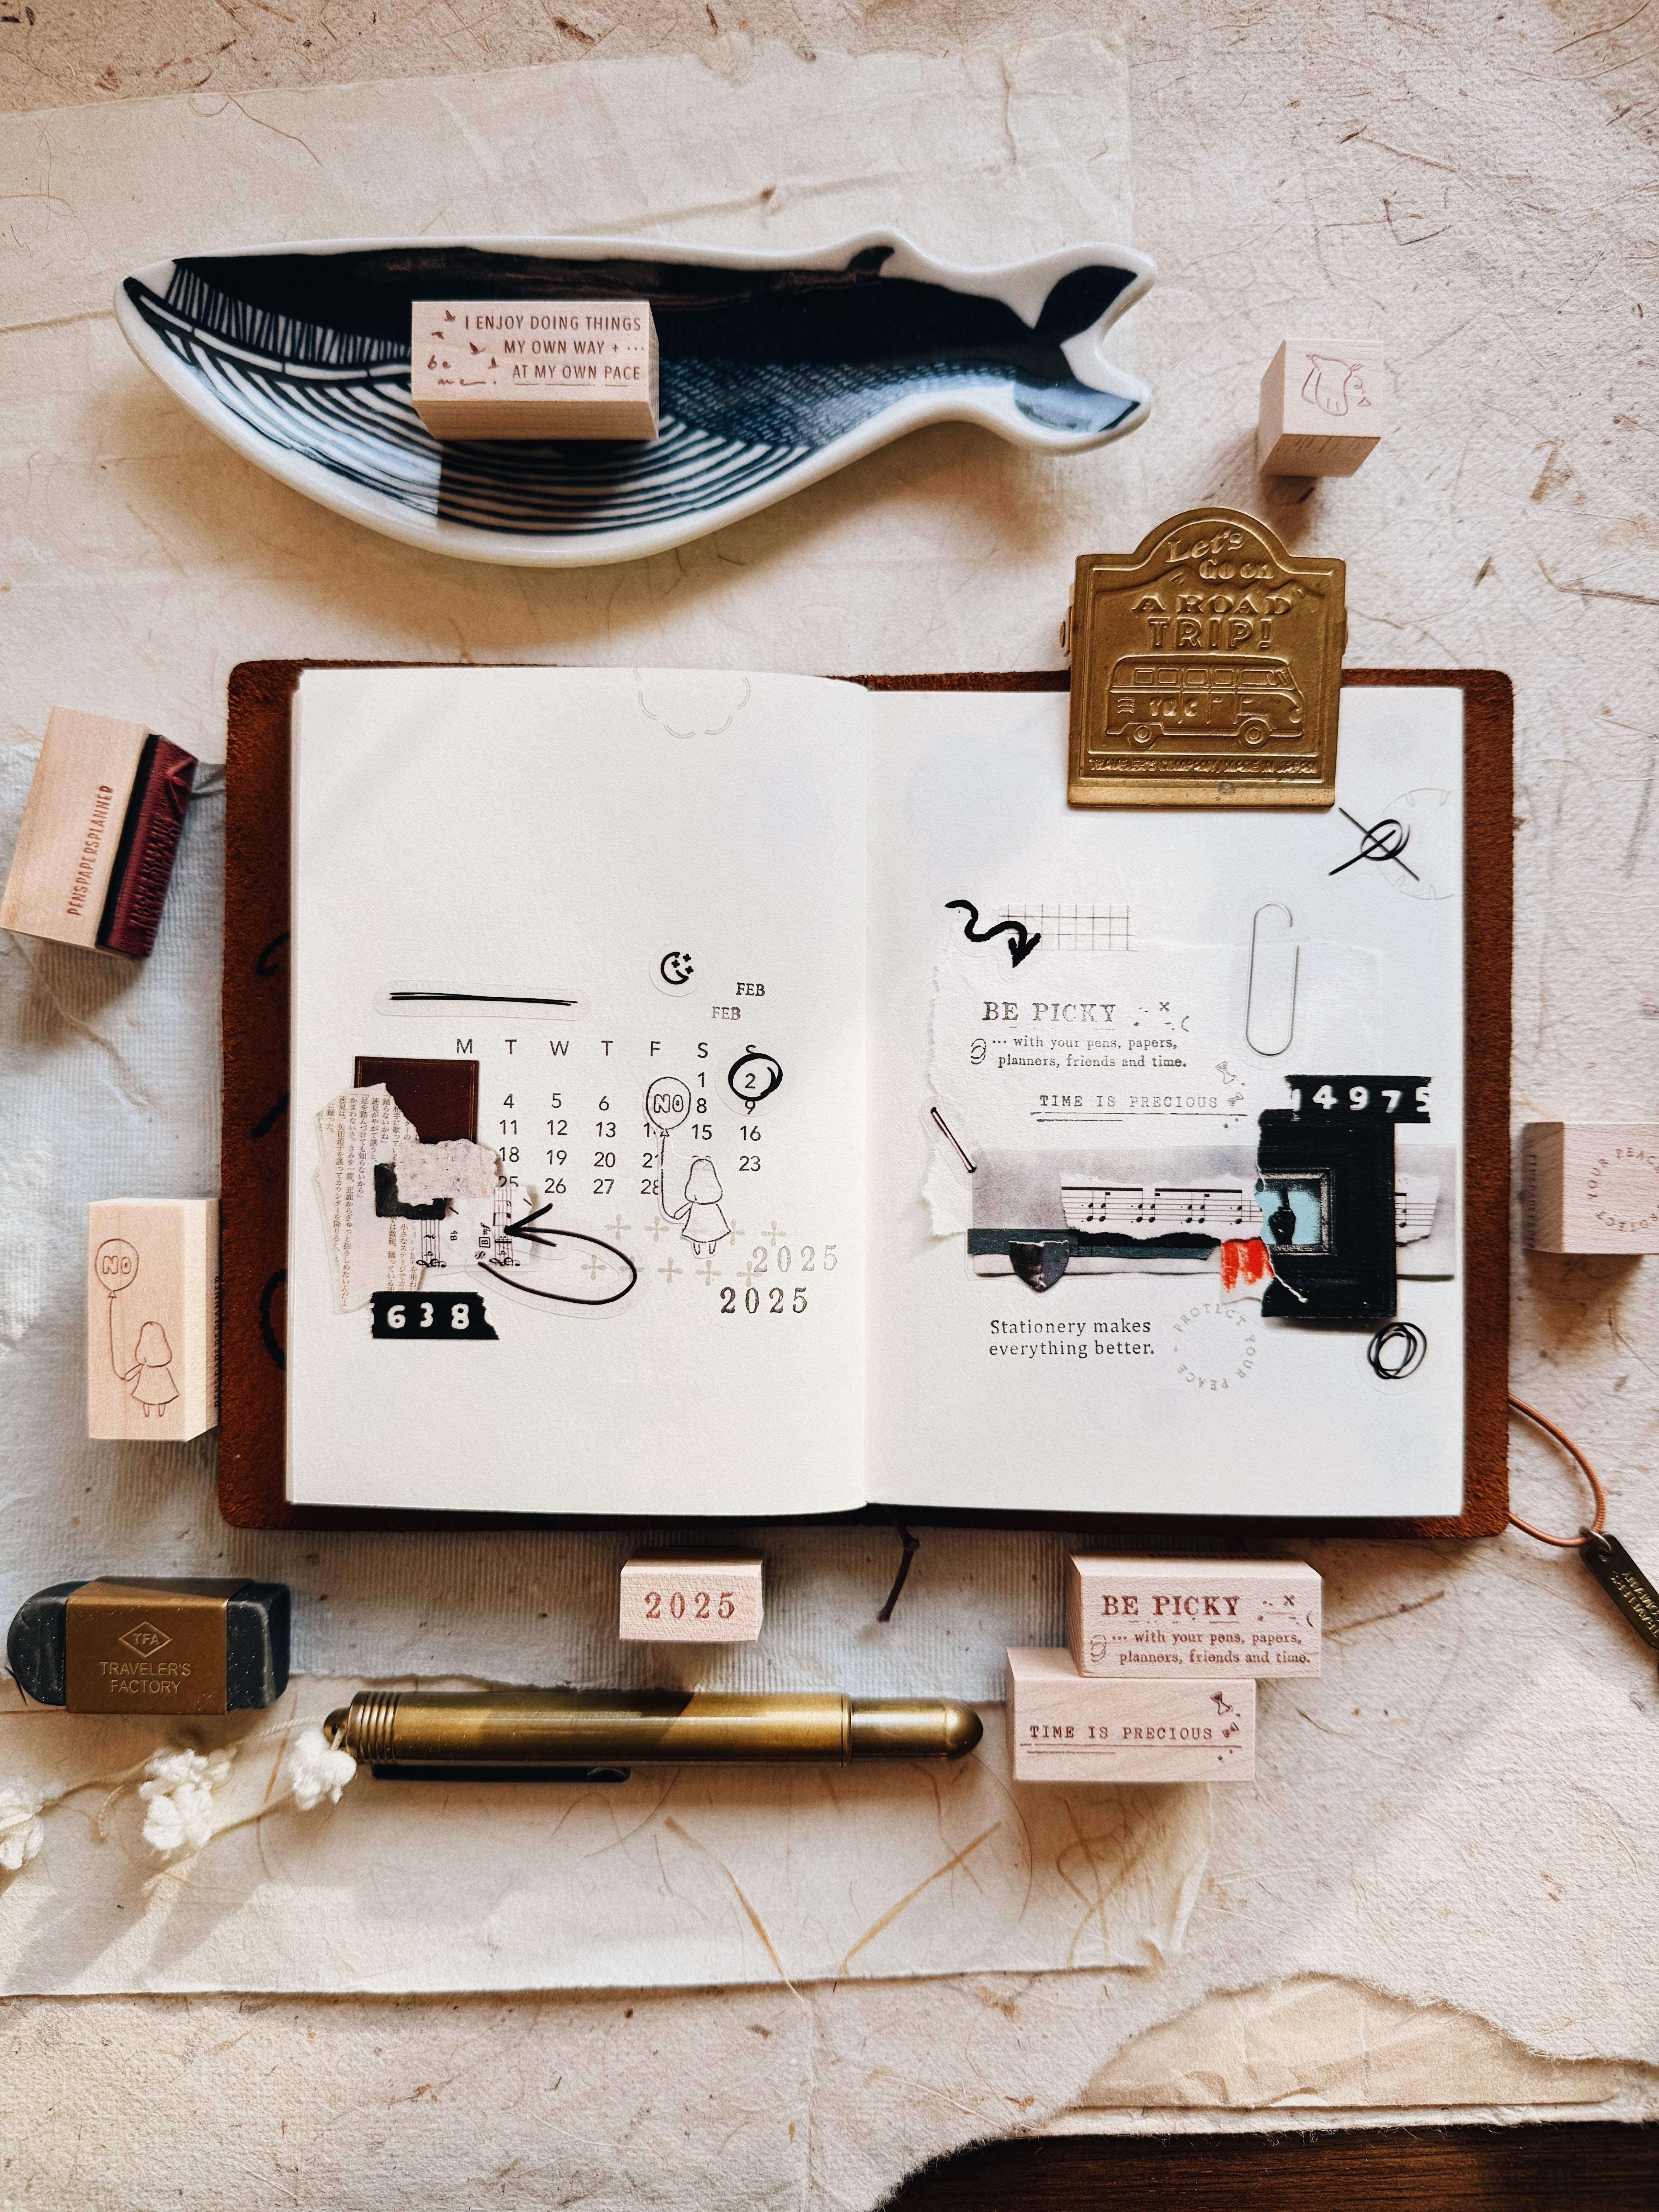 I ENJOY DOING THINGS
MY OWN WAY + ...
AT MY OWN PACE
be
me.
Let's
Go on
A ROAD
TRIP!
TRAVELER'S COMPANY MADE IN JAPAN
PENSPAPERSPLANNER
NO
FEB
FEB
M T W T F S S
1 2
4 5 6 8 9
11 12 13 15 16
18 19 20 21 23
25 26 27 28
NO
2025
2025
638
BE PICKY
... with your pens, papers,
planners, friends and time.
TIME IS PRECIOUS
14975
Stationery makes
everything better.
PROTECT YOUR PEACE
YOUR PEACE
PROTECT
TFA
TRAVELER'S
FACTORY
2025
BE PICKY
... with your pens, papers,
planners, friends and time.
TIME IS PRECIOUS